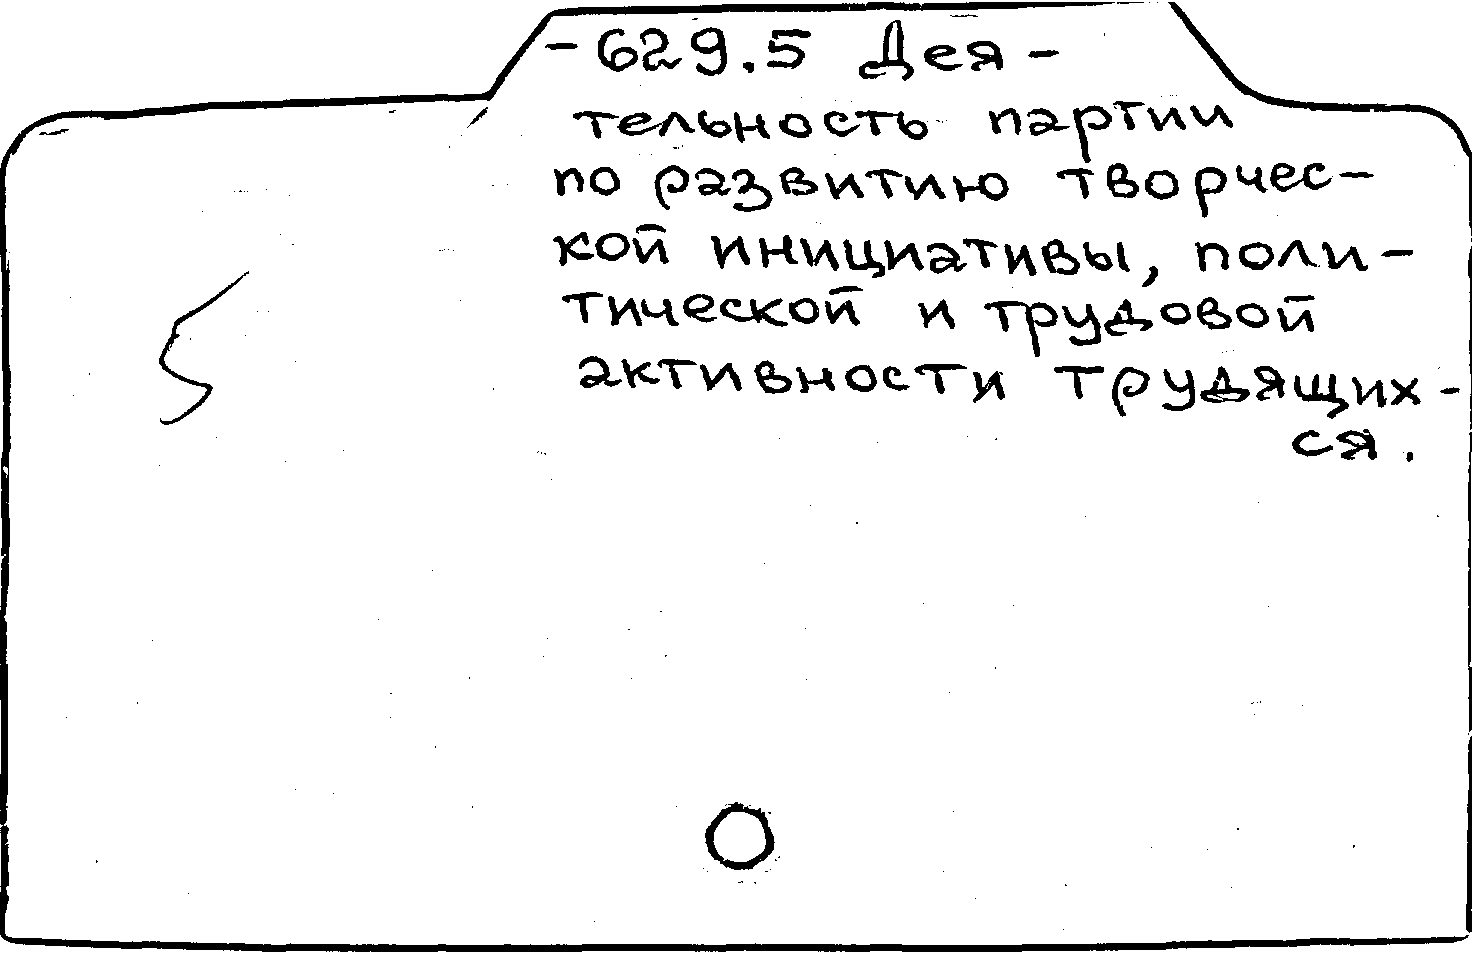 -629.5 Дея-
тельность партии
по развитию творчес-
кой инициативы, поли-
тической и трудовой
активности трудящих-
ся.